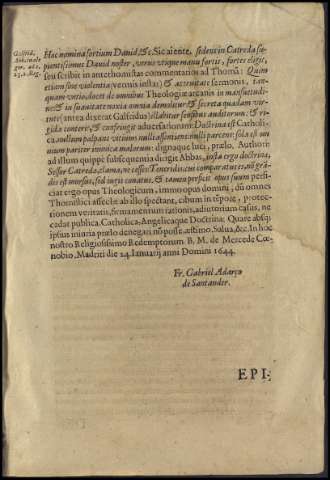 Galfrid.
Hæc nomina fortium Dauid, &c. Sic aiente, sedens in Catreda sa-
pientissimus Dauid noster, verus utique manu fortis, fortes eligit,
seu scribit in antethomistas commentarios ad Thomã: Quin
etiam sine violentia (vt omnis instat) & asperitate sermonis, tan-
quam omnio, docet de omnibus Theologiæ arcanis in mansuetudi-
ne: & in suauitate noxia omnia demolitur & secreta quadam vir-
(antea dixerat Galfridus) illabitur sensibus auditorum: & ri-
gida conterit, & confringit aduersariorum: Doctrina est Catholi-
ca, nullum palpans vitium: nulli assentiens: nulli parcens: sola est om-
nium pariter amica malorum: dignaque luci, prælo. Authori
ad illum quippe subsequentia dirigit Abbas, insta ergo doctrina,
Sessor Catreda, clama, ne cesses: Teneri dicunt comparatur, nõ gra-
dis est morsus, sed corii conatus, & tamen perficit opus suum perfi-
ciat ergo opus Theologicum, immo opus domini, dũ omnes
Thomistici assedæ ab illo spectant, cibum in tempore, protec-
tionem veritatis, firmamentum rationis, adiutorium casus, ne
cedat publica, Catholica, Angelicaque Doctrina: Quare absq;
ipsius iniuria prælo denegari nõ posse æstimo. Salua, &c. In hoc
nostro Religiosissimo Redemptorum B. M. de Mercede Cœ-
nobio, Madriti die 24. Ianuarij anni Domini 1644.
Fr. Gabriel Adarço
de Santander.
EPI-